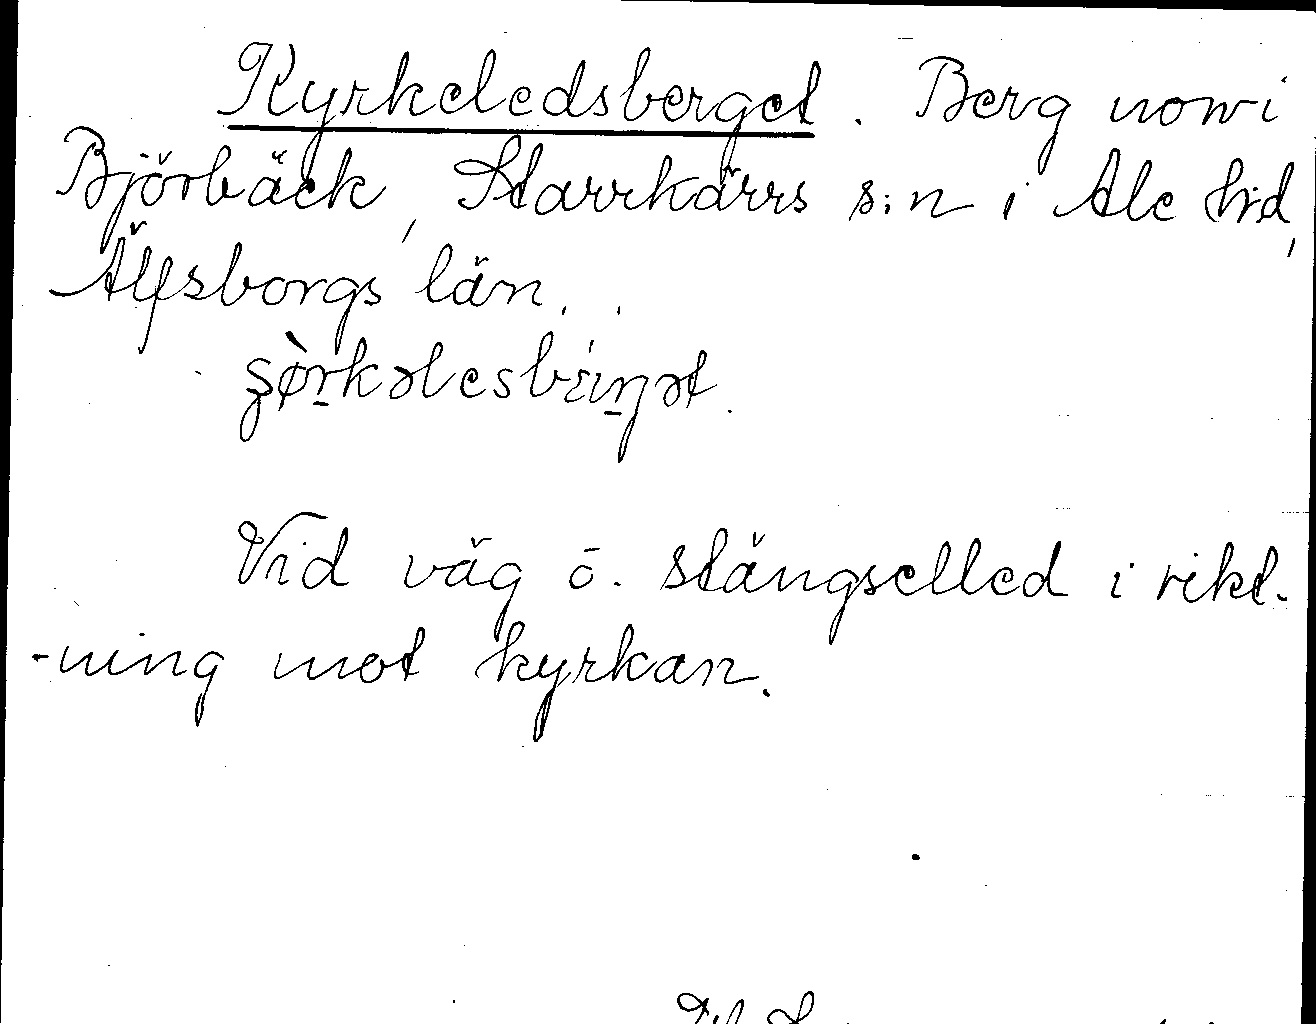 Kyrkeledsberget. Berg nov i
Björbäck, Starrkärrs s:n i Ale hd,
Älfsborgs län.
Vid väg o. stängselled i rikt-
-ning mot kyrkan.